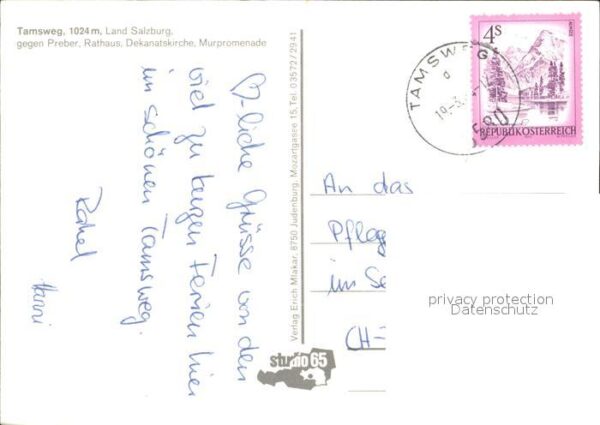 Tamsweg, 1024 m, Land Salzburg,
gegen Preber, Rathaus, Dekanatskirche, Murpromenade
♡-liche Grüsse von den
viel zu kurzen Ferien hier
im schönen Tamsweg.
Rahel
Hanni
Verlag Erich Mlakar, 8750 Judenburg, Mozartgasse 15, Tel. 03572/2941
studio 65
TAMSWEG
5580
4S
REPUBLIK ÖSTERREICH
An das
Pfleg
im Se
CH-
privacy protection
Datenschutz